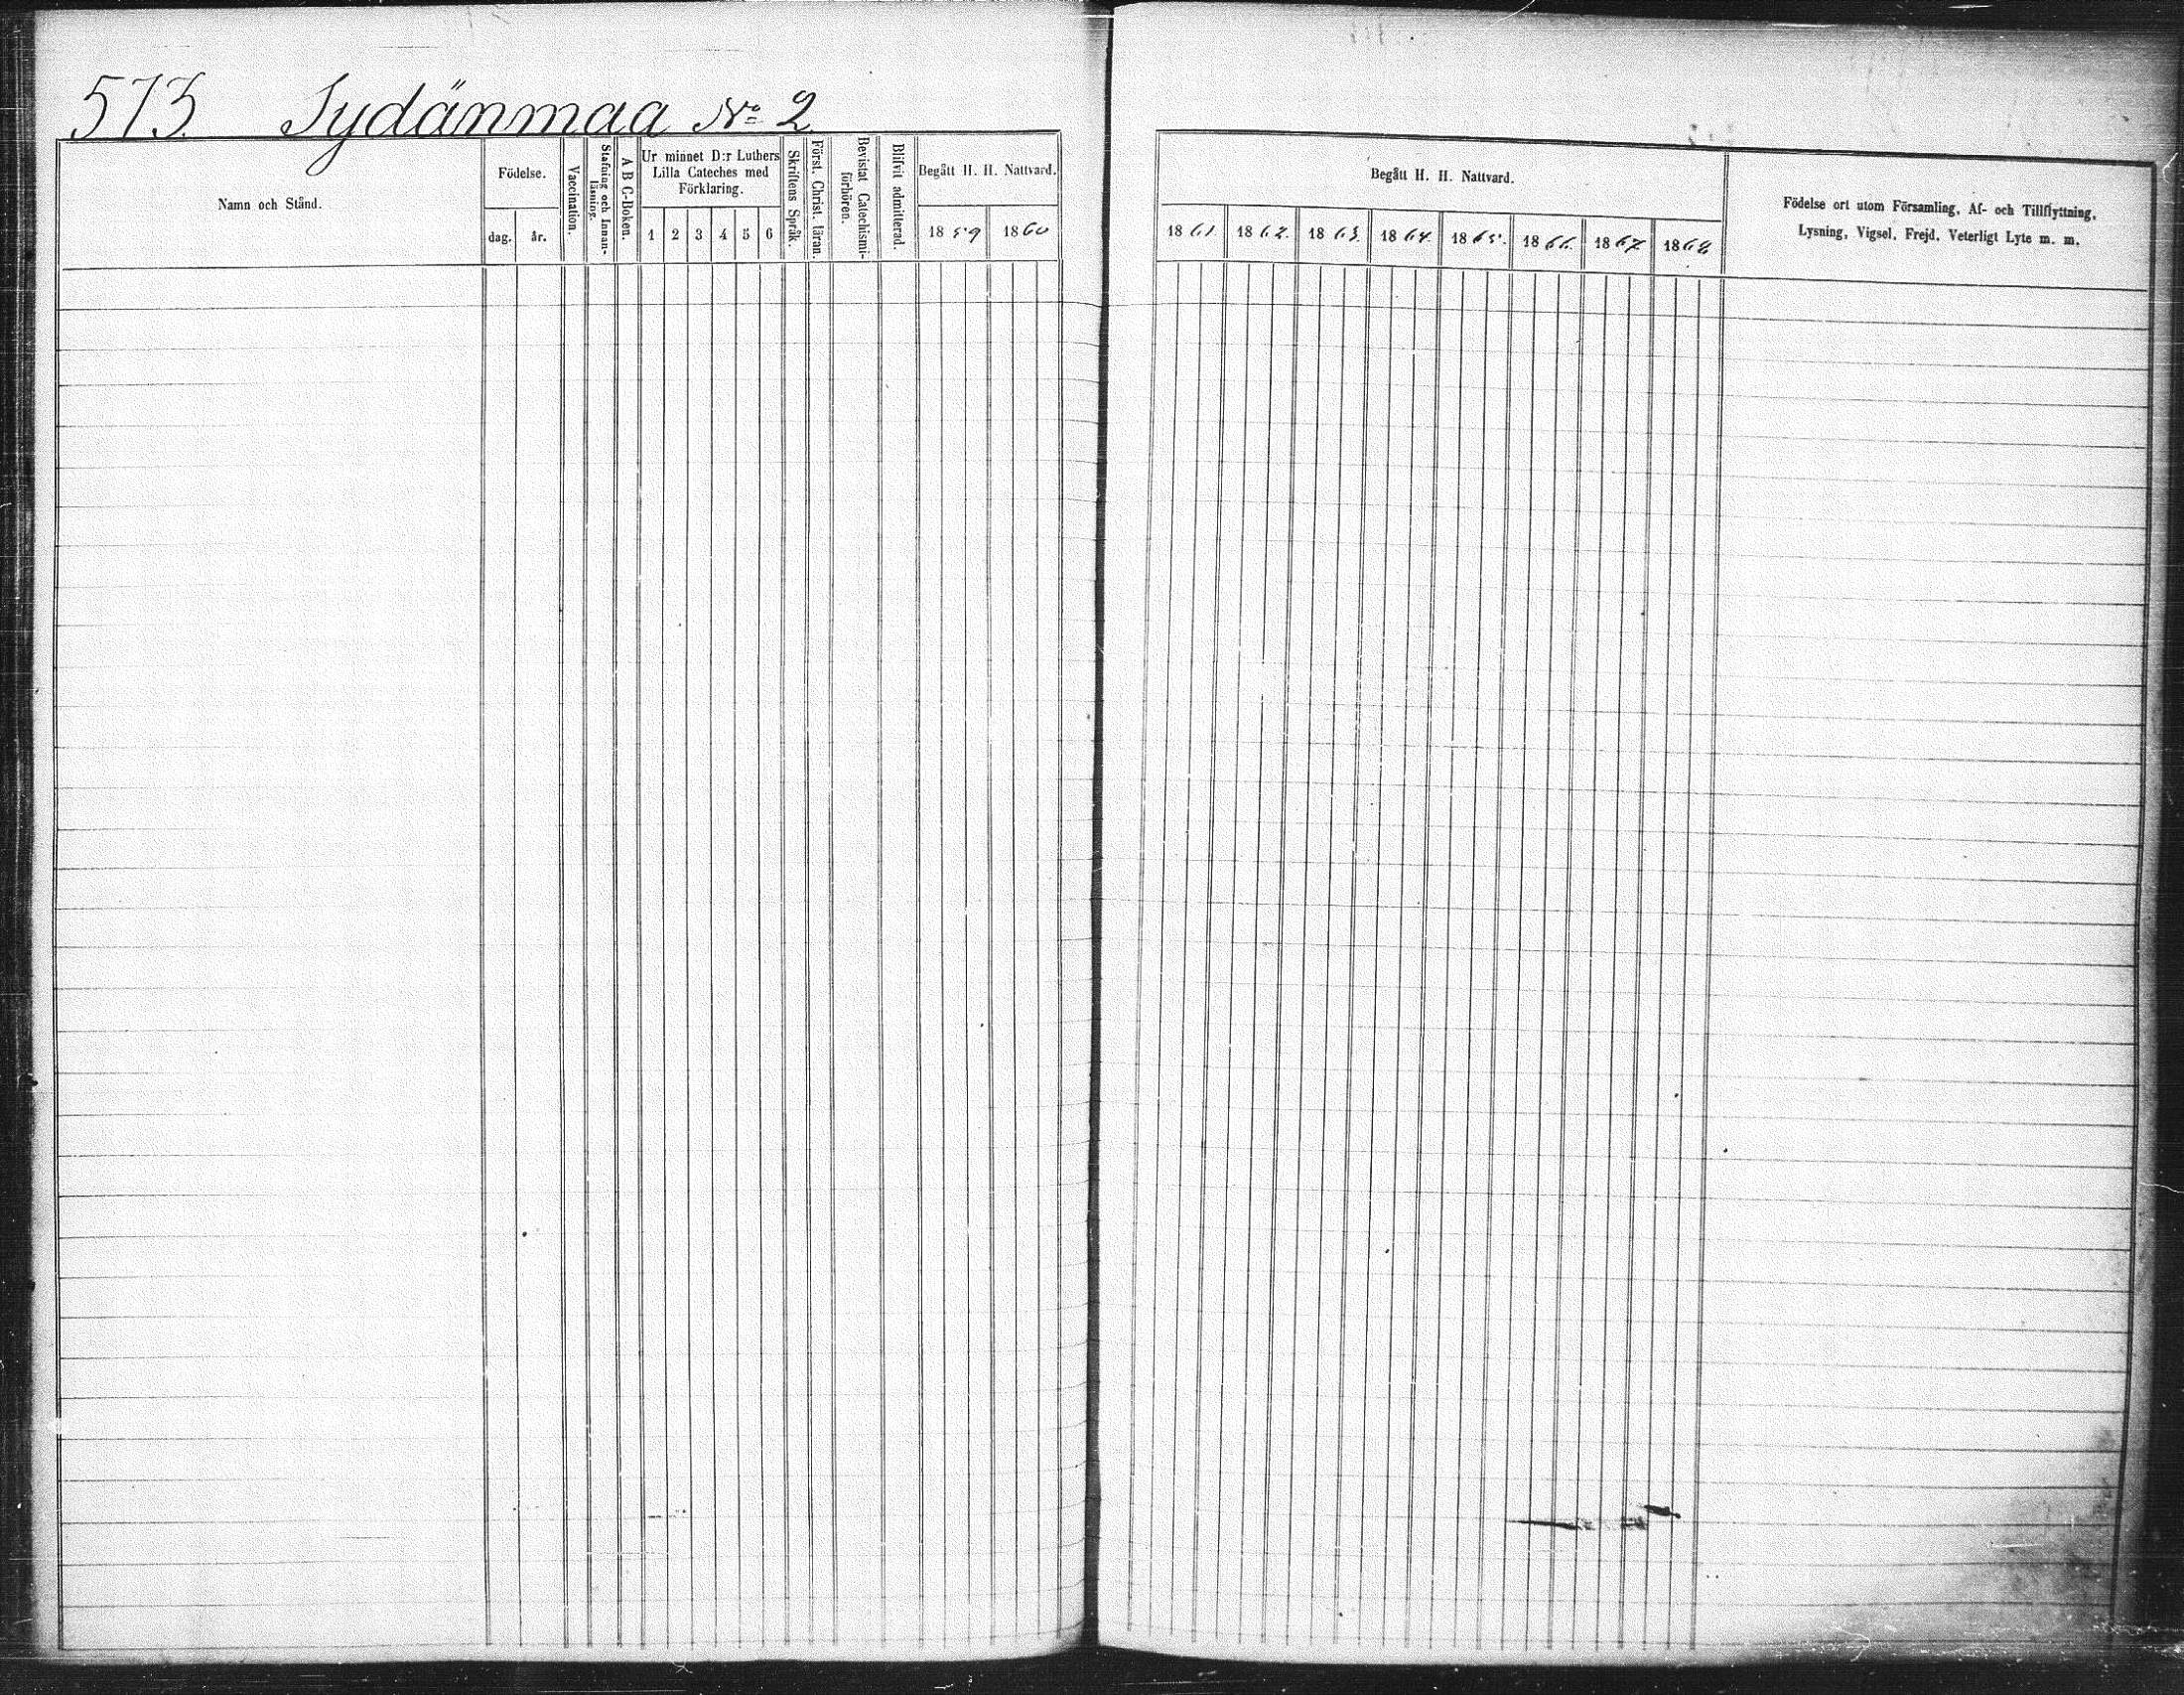 573. Sydänmaa No 2
Namn och Stånd.
Födelse.
dag. år.
Vaccination.
Stafning och Innan-
läsning.
A B C-Boken.
Ur minnet D:r Luthers
Lilla Cateches med
Förklaring.
1 2 3 4 5 6
Skriftens Språk.
Först. Christ. läran.
Bevistat Catechismi-
förhören.
Blifvit admitterad.
Begått H. H. Nattvard.
1859 1860
Begått H. H. Nattvard.
1861. 1862. 1863. 1864. 1865. 1866. 1867. 1868
Födelse ort utom Församling, Af- och Tillflyttning,
Lysning, Vigsel, Frejd, Veterligt Lyte m. m.